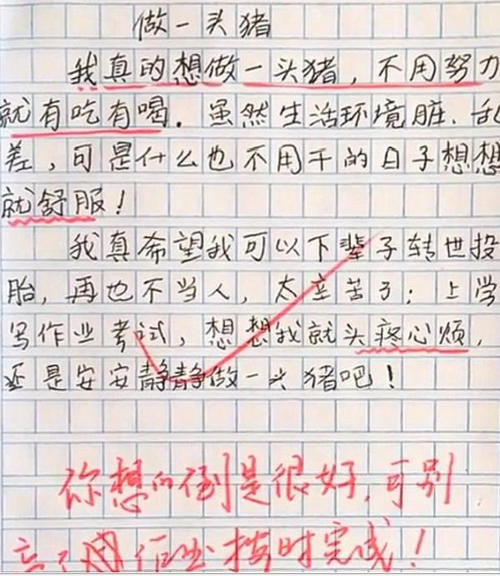 做一头猪
我真的想做一头猪，不用努力
就有吃有喝．虽然生活环境脏．乱
差，可是什么也不用干的日子想想
就舒服！
我真希望我可以下辈子转世投
胎，再也不当人，太辛苦了；上学
写作业考试，想想我就头疼心烦，
还是安安静静做一头猪吧！
你想的倒是很好，可别
忘了 作业按时完成！